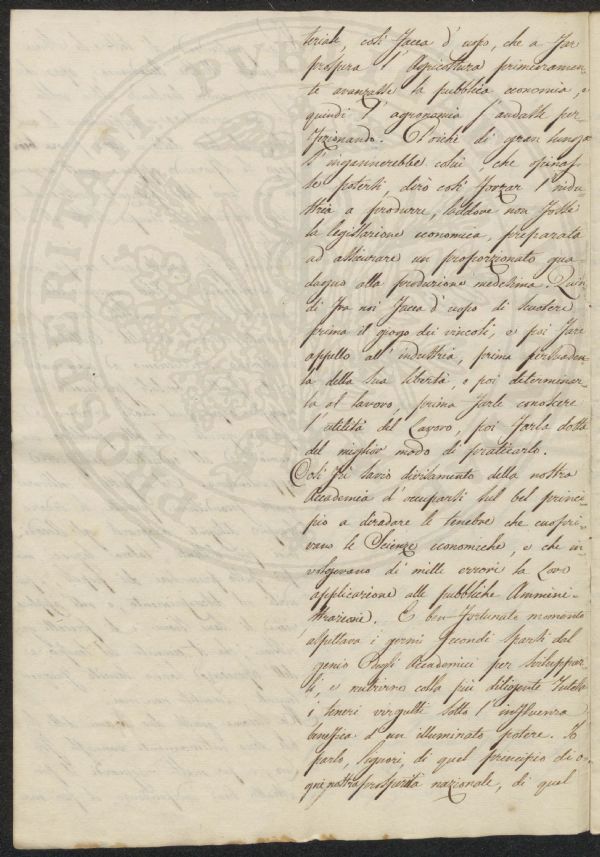 teriale, così facea d'uopo, che a far
prospera l'Agricoltura primieramen-
te avanzasse la pubblica economia, e
quindi l'agronomia s'andasse per-
fezionando. Poiché di gran lunga
s'ingannerebbe colui, che opinas-
se potersi, dirò così forzar l'indu
stria a produrre, laddove non fosse
la legislazione economica, preparata
ad assicurare un proporzionato gua
dagno alla produzione medesima. Quin
di fra noi facea d'uopo di scuotere
prima il giogo dei vincoli, e poi fare
appello all'industria, prima persuader-
la della sua libertà, e poi determinar-
la al lavoro, prima farle conoscere
l'utilità del Lavoro, poi farla dotta
del miglior modo di praticarlo.
Così fù savio divisamento della nostra
Accademia d'occuparsi sul bel princi-
pio a diradare le tenebre che cuopri-
vano le Scienze economiche, e che in-
volgevano di mille errori la Loro
applicazione alle pubbliche Ammini-
strazioni. E ben fortunato momento
aspettava i germi fecondi sparsi dal
genio Degli Accademici per svilupar-
si, e nutrirne colla più diligente tutela
i teneri virgulti sotto l'influenza
benefica d'un illuminato potere. Io
parlo, Signori, di quel principio di o-
gni nostra prosperità nazionale, di quel
PROSPERITATI PUBLICAE